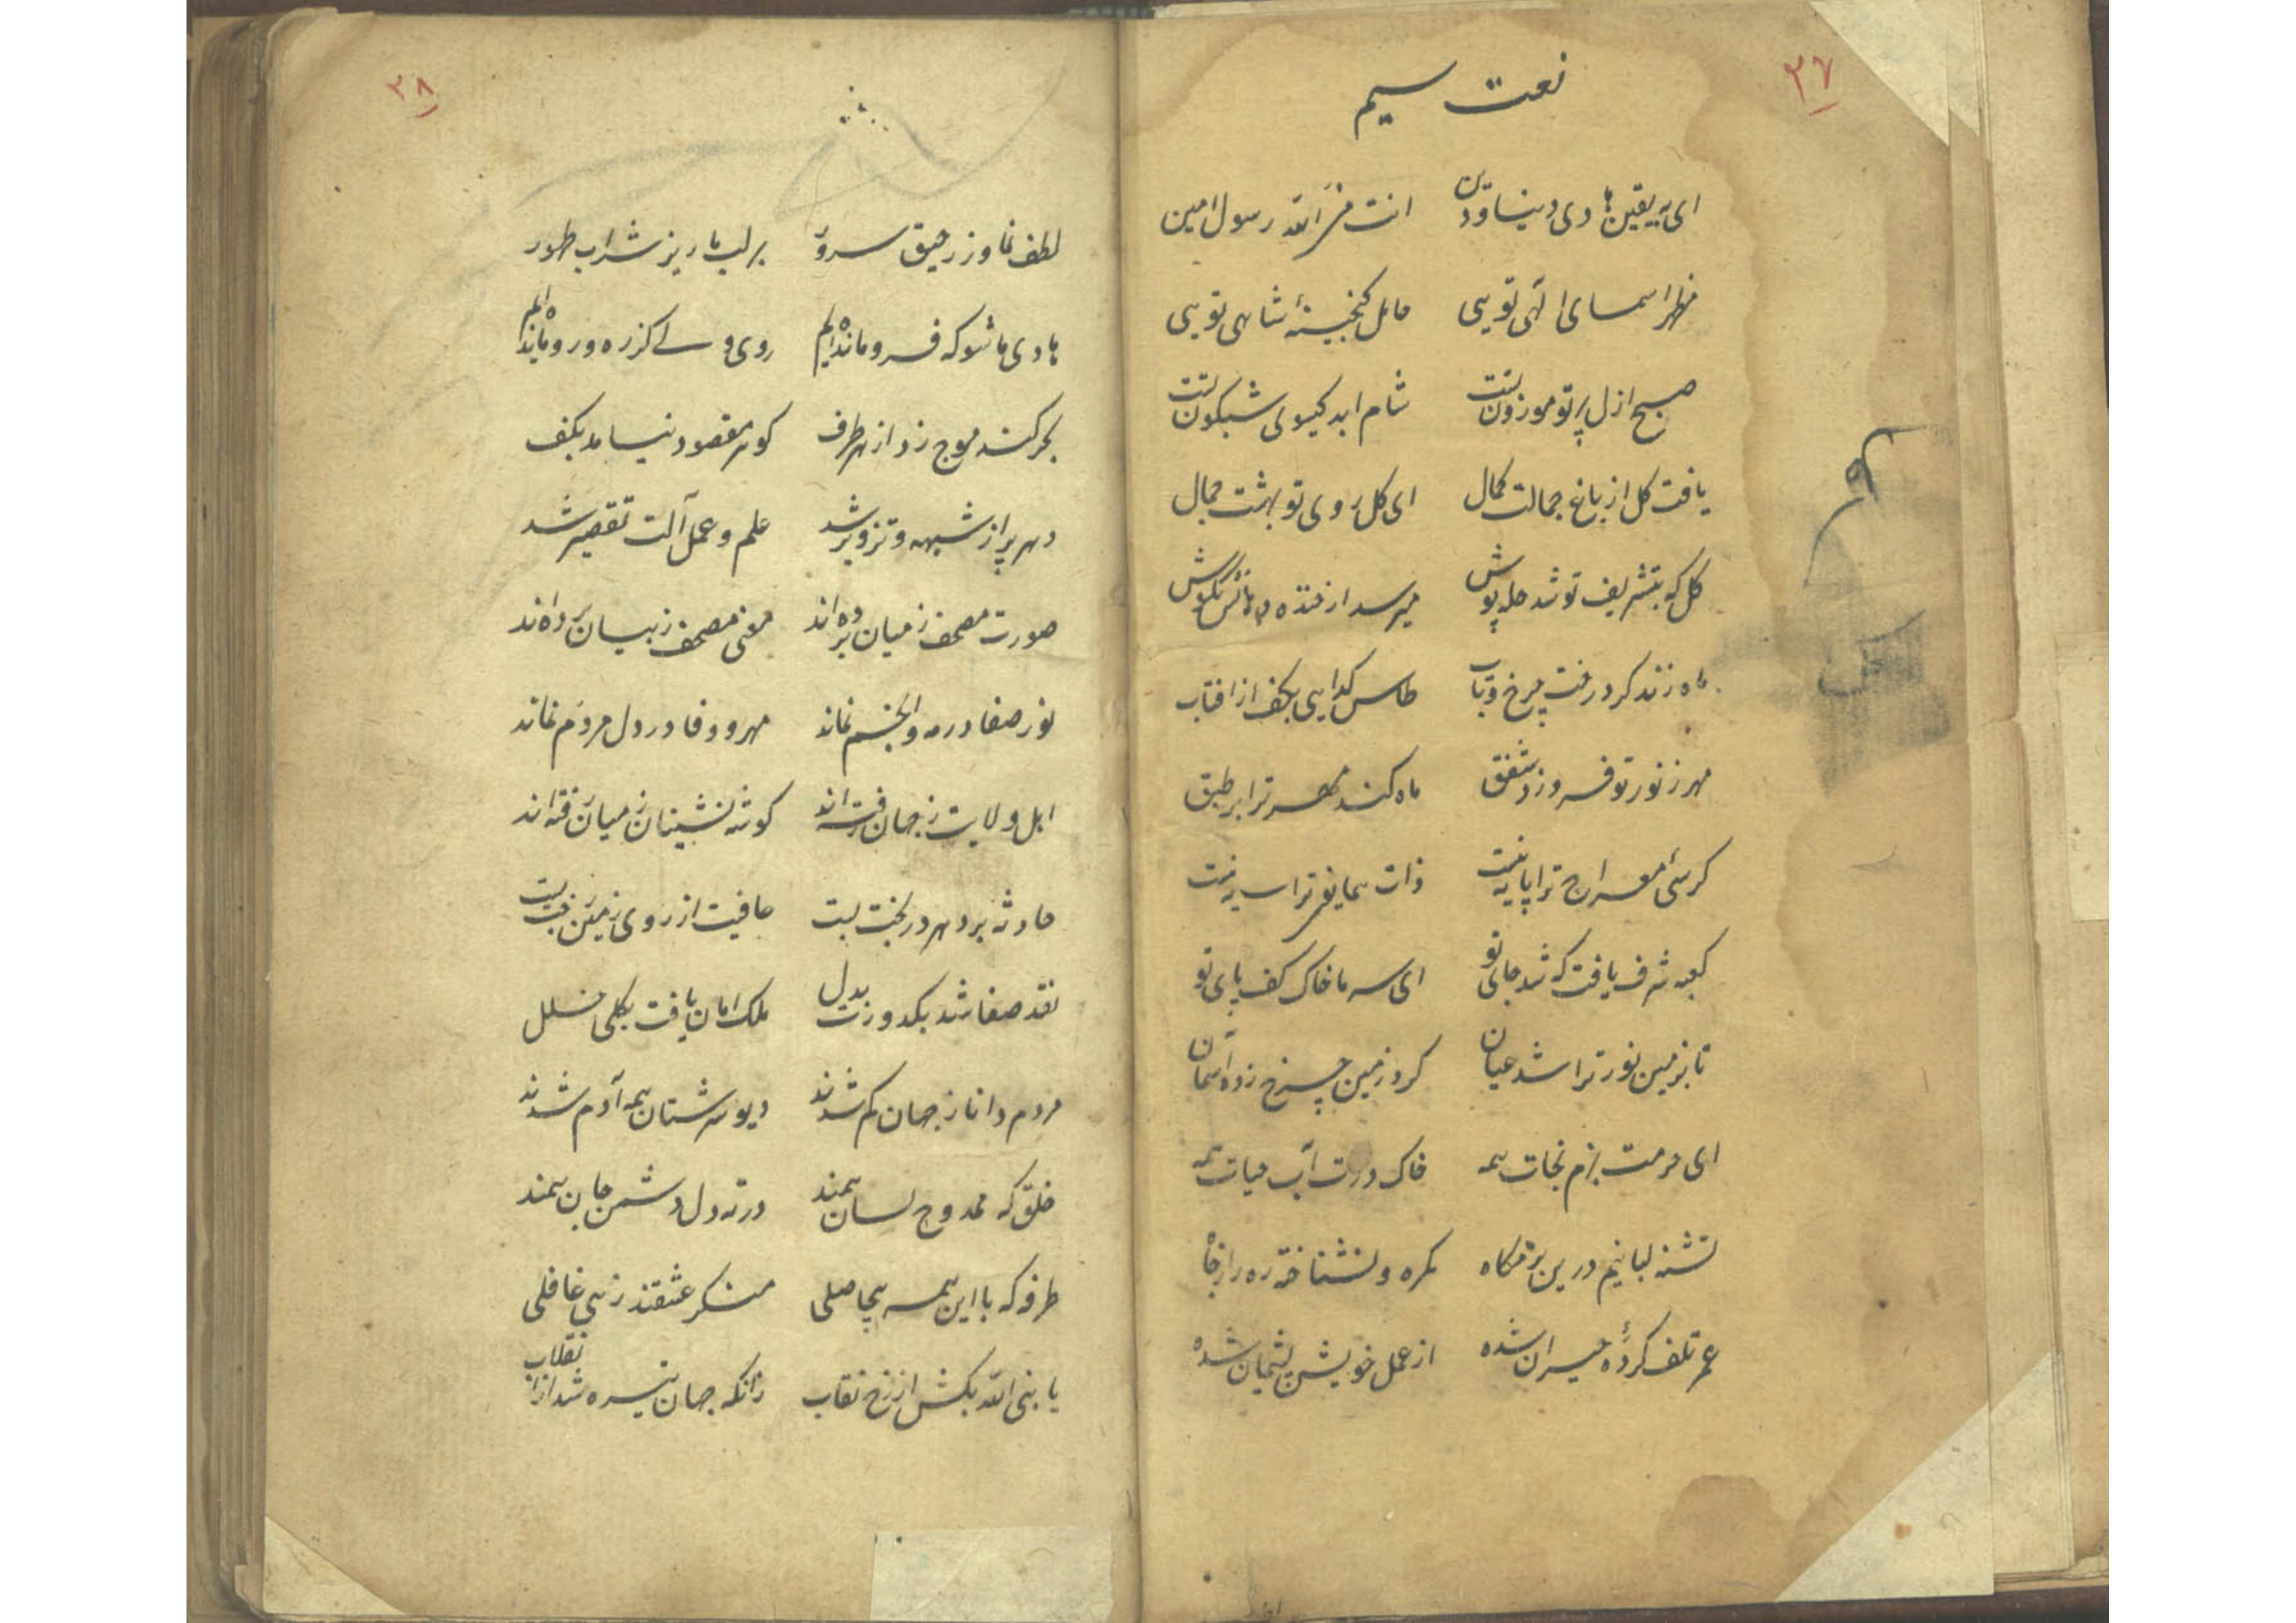 ۳۷
نعت سیم
ای به یقین هادی دنیا و دین انت من الله رسول امین
مظهر اسمای الهی تویی حامل گنجینهٔ شاهی تویی
صبح ازل پرتو موزون تست شام ابد گیسوی شبگون تست
یافت گل از باغ جمالت کمال ای گل روی تو بهشت جمال
گل که بتشریف تو شد حله پوش میرسد از خنده دهانش بگوش
ماه زند گرد رخت چرخ و تاب طاس گدایی بکف از افتاب
مهر ز نور تو فروزد شفق ماه کند مهر ترا بر طبق
کرسی معراج ترا پایه نیست ذات همایون ترا سایه نیست
کعبه شرف یافت که شد جای تو ای سر ما خاک کف پای تو
تا بزمین نور ترا شد عیان گرد زمین چرخ زد آسمان
ای حرمت بزم نجات همه خاک درت آب حیات همه
تشنه لبانیم درین بزمگاه گمره و نشناخته ره را ز چاه
عمر تلف کرده حیران شده از عمل خویش پشیمان شده
۳۸
لطف نما وز رحیق سرور بر لب ما ریز شراب طهور
هادی ما شو که فرو مانده ایم روی ولی کز ره و رو مانده ایم
بحر گنه موج زد از هر طرف گوهر مقصود نیامد بکف
دهر پر از شبهه و تزویر شد علم و عمل آلت تقصیر شد
صورت مصحف ز میان برده اند معنی مصحف ز بیان برده اند
نور صفا در مه و انجم نماند مهر و وفا در دل مردم نماند
اهل ولایت ز جهان رفته اند گوشه نشینان ز میان رفته اند
حادثه بر دهر در بخت بست عافیت از روی زمین رخت بست
نقد صفا شد بکدورت بدل ملک امان یافت بکلی خلل
مردم دانا ز جهان کم شدند دیو سرشتان همه آدم شدند
خلق که ممدوح لسان همند در ته دل دشمن جان همند
طرفه که با این همه بیحاصلی منکر عشقند زهی غافلی
یا نبی الله بکش از رخ نقاب زانکه جهان تیره شد از انقلاب